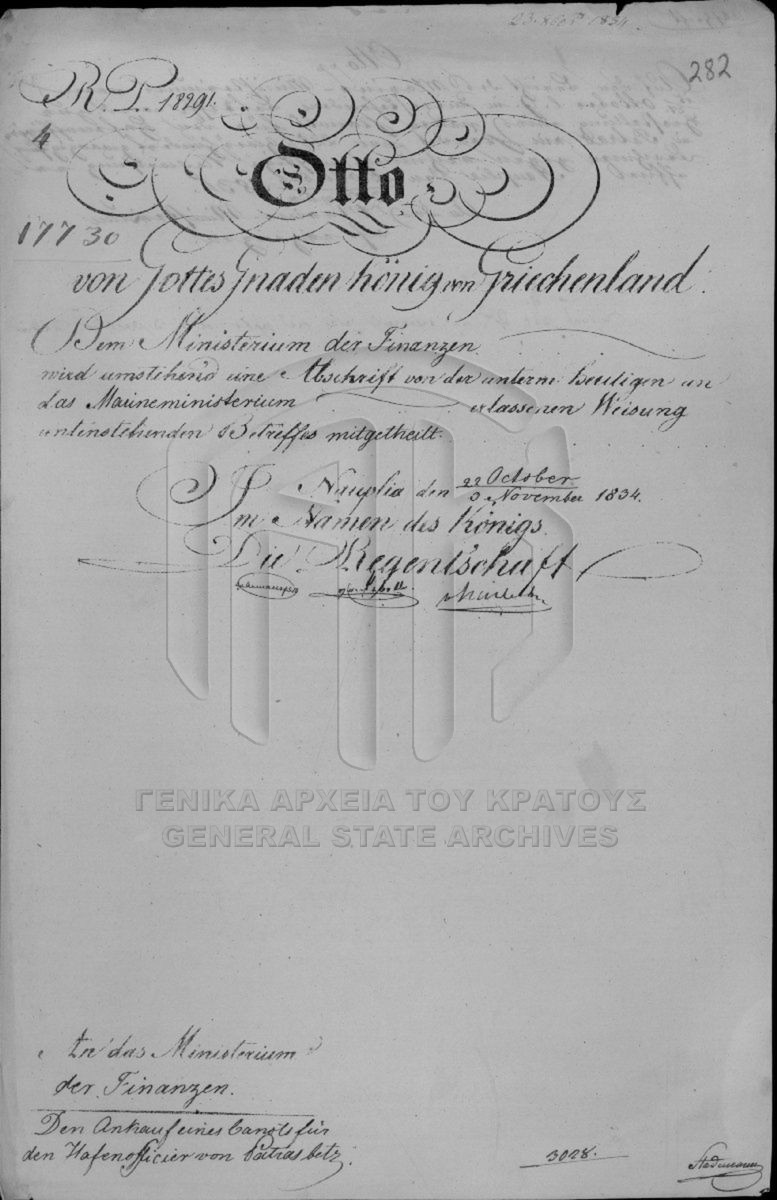 282
R. P. 18291.
4
Otto
17730
von Gottes Gnaden König von Griechenland.
Dem Ministerium der Finanzen
wird umstehend eine Abschrift von der unterm heutigen an
das Marineministerium erlassenen Weisung
untenstehenden Betreffes mitgetheilt.
Nauplia den 22 October / 3 November 1834.
Im Namen des Königs
Die Regentschaft
ΓΕΝΙΚΑ ΑΡΧΕΙΑ ΤΟΥ ΚΡΑΤΟΥΣ
GENERAL STATE ARCHIVES
An das Ministerium
der Finanzen.
Den Ankauf eines Canots für
den Hafenofficier von Patras betr.
3028.